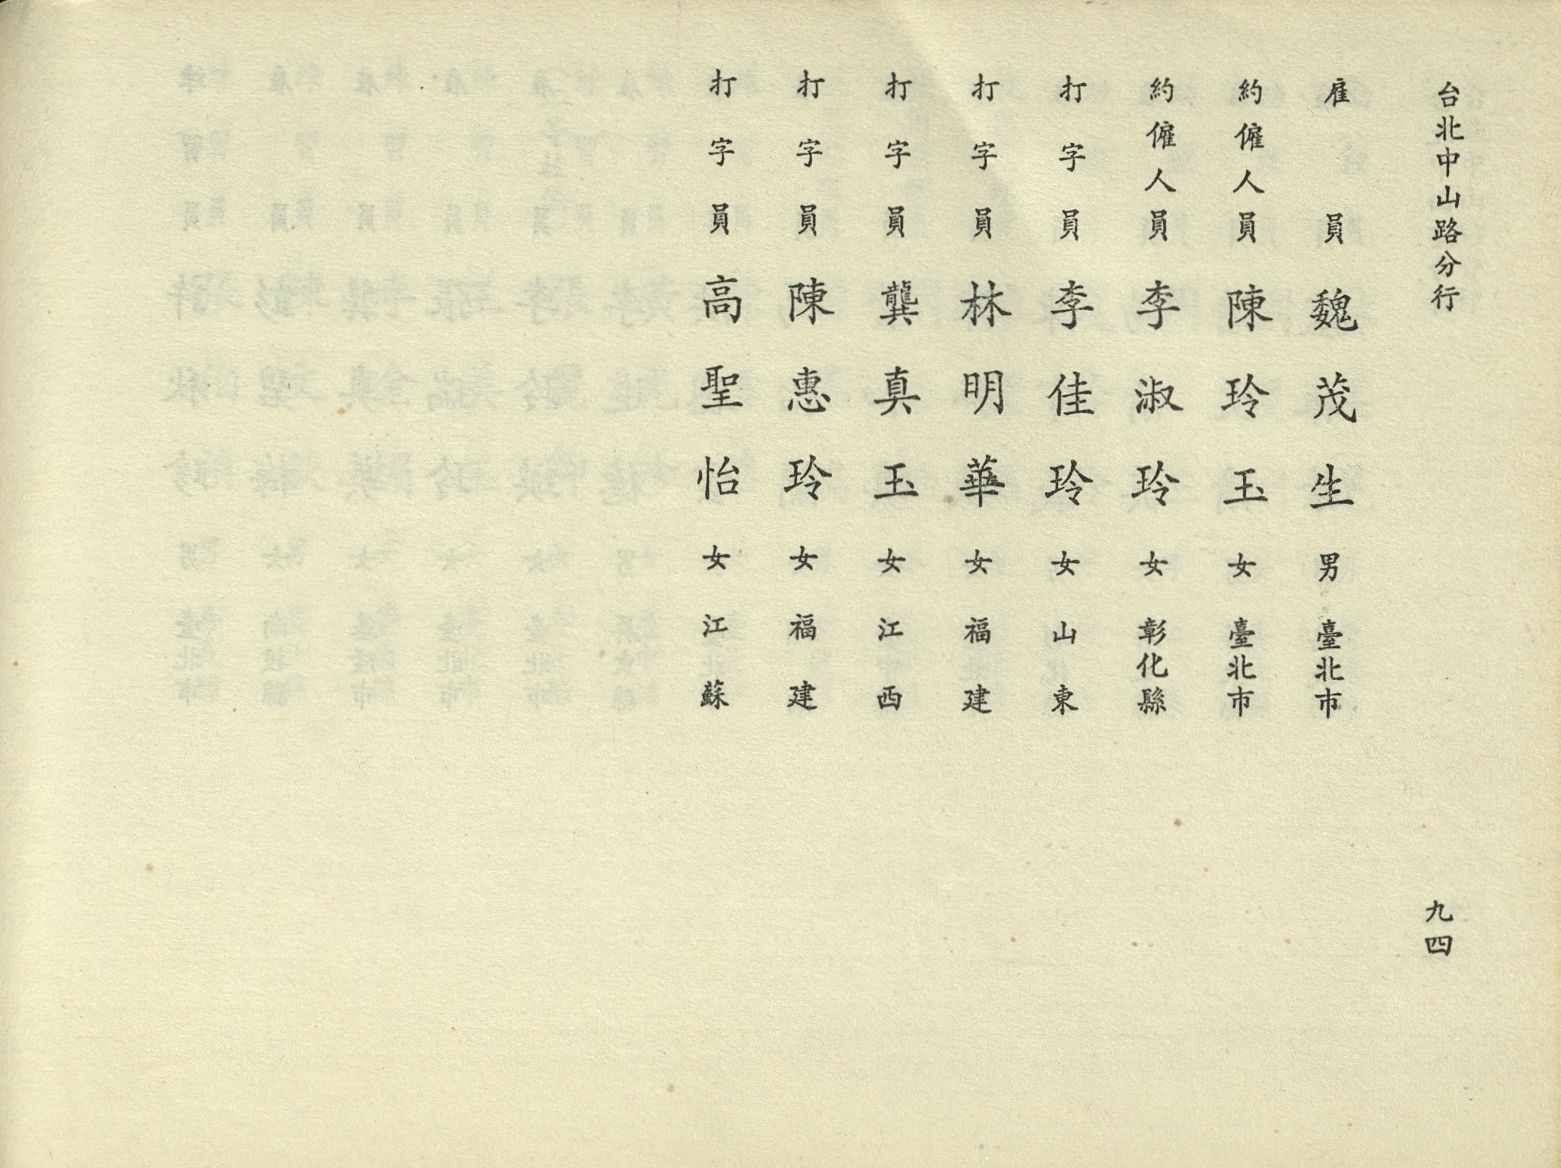 台北中山路分行
九四
雇員 魏茂生 男 臺北市
約僱人員 陳玲玉 女 臺北市
約僱人員 李淑玲 女 彰化縣
打字員 李佳玲 女 山東
打字員 林明華 女 福建
打字員 龔真玉 女 江西
打字員 陳惠玲 女 福建
打字員 高聖怡 女 江蘇